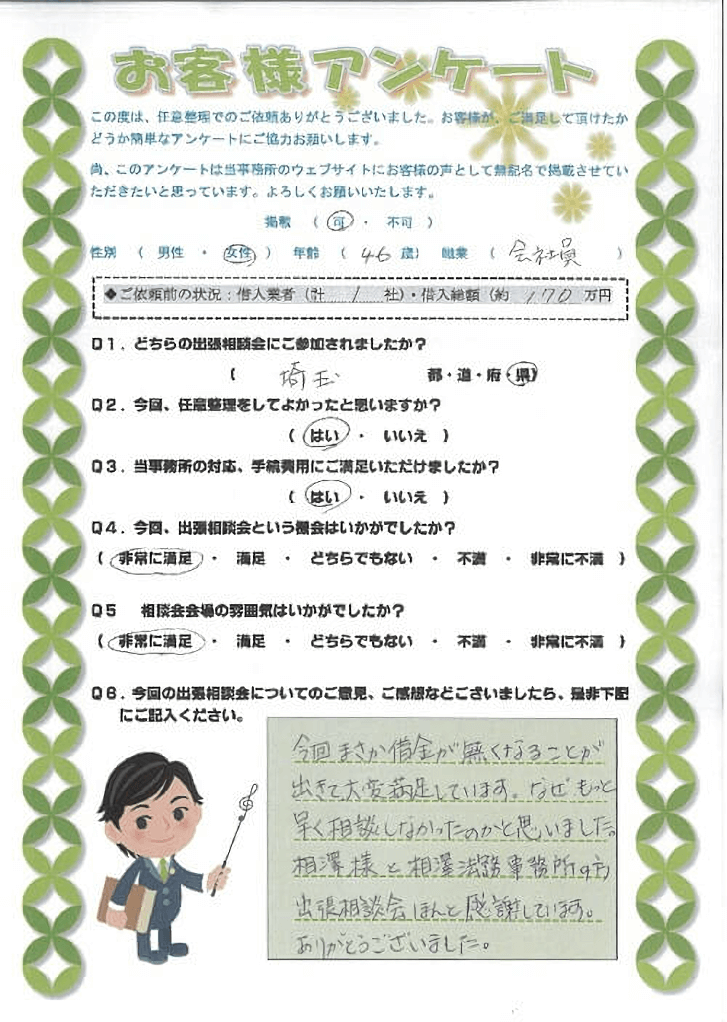 お客様アンケート
この度は、任意整理でのご依頼ありがとうございました。お客様が、ご満足して頂けたか
どうか簡単なアンケートにご協力お願いします。
尚、このアンケートは当事務所のウェブサイトにお客様の声として無記名で掲載させてい
ただきたいと思っています。よろしくお願いいたします。
掲載 ( 可 ・ 不可 )
性別 ( 男性 ・ 女性 ) 年齢 ( 46 歳) 職業 ( 会社員 )
◆ご依頼前の状況:借入業者(計 1 社)・借入総額(約 170 万円
Q1.どちらの出張相談会にご参加されましたか?
( 埼玉 都・道・府・県)
Q2.今回、任意整理をしてよかったと思いますか?
( はい ・ いいえ )
Q3.当事務所の対応、手続費用にご満足いただけましたか?
( はい ・ いいえ )
Q4.今回、出張相談会という機会はいかがでしたか?
( 非常に満足 ・ 満足 ・ どちらでもない ・ 不満 ・ 非常に不満 )
Q5 相談会会場の雰囲気はいかがでしたか?
( 非常に満足 ・ 満足 ・ どちらでもない ・ 不満 ・ 非常に不満 )
Q6.今回の出張相談会についてのご意見、ご感想などございましたら、是非下記
にご記入ください。
今回まさか借金が無くなることが
出きて大変満足しています。なぜもっと
早く相談しなかったのかと思いました。
相澤様と相澤法務事務所の方
出張相談会ほんと感謝しています。
ありがとうございました。